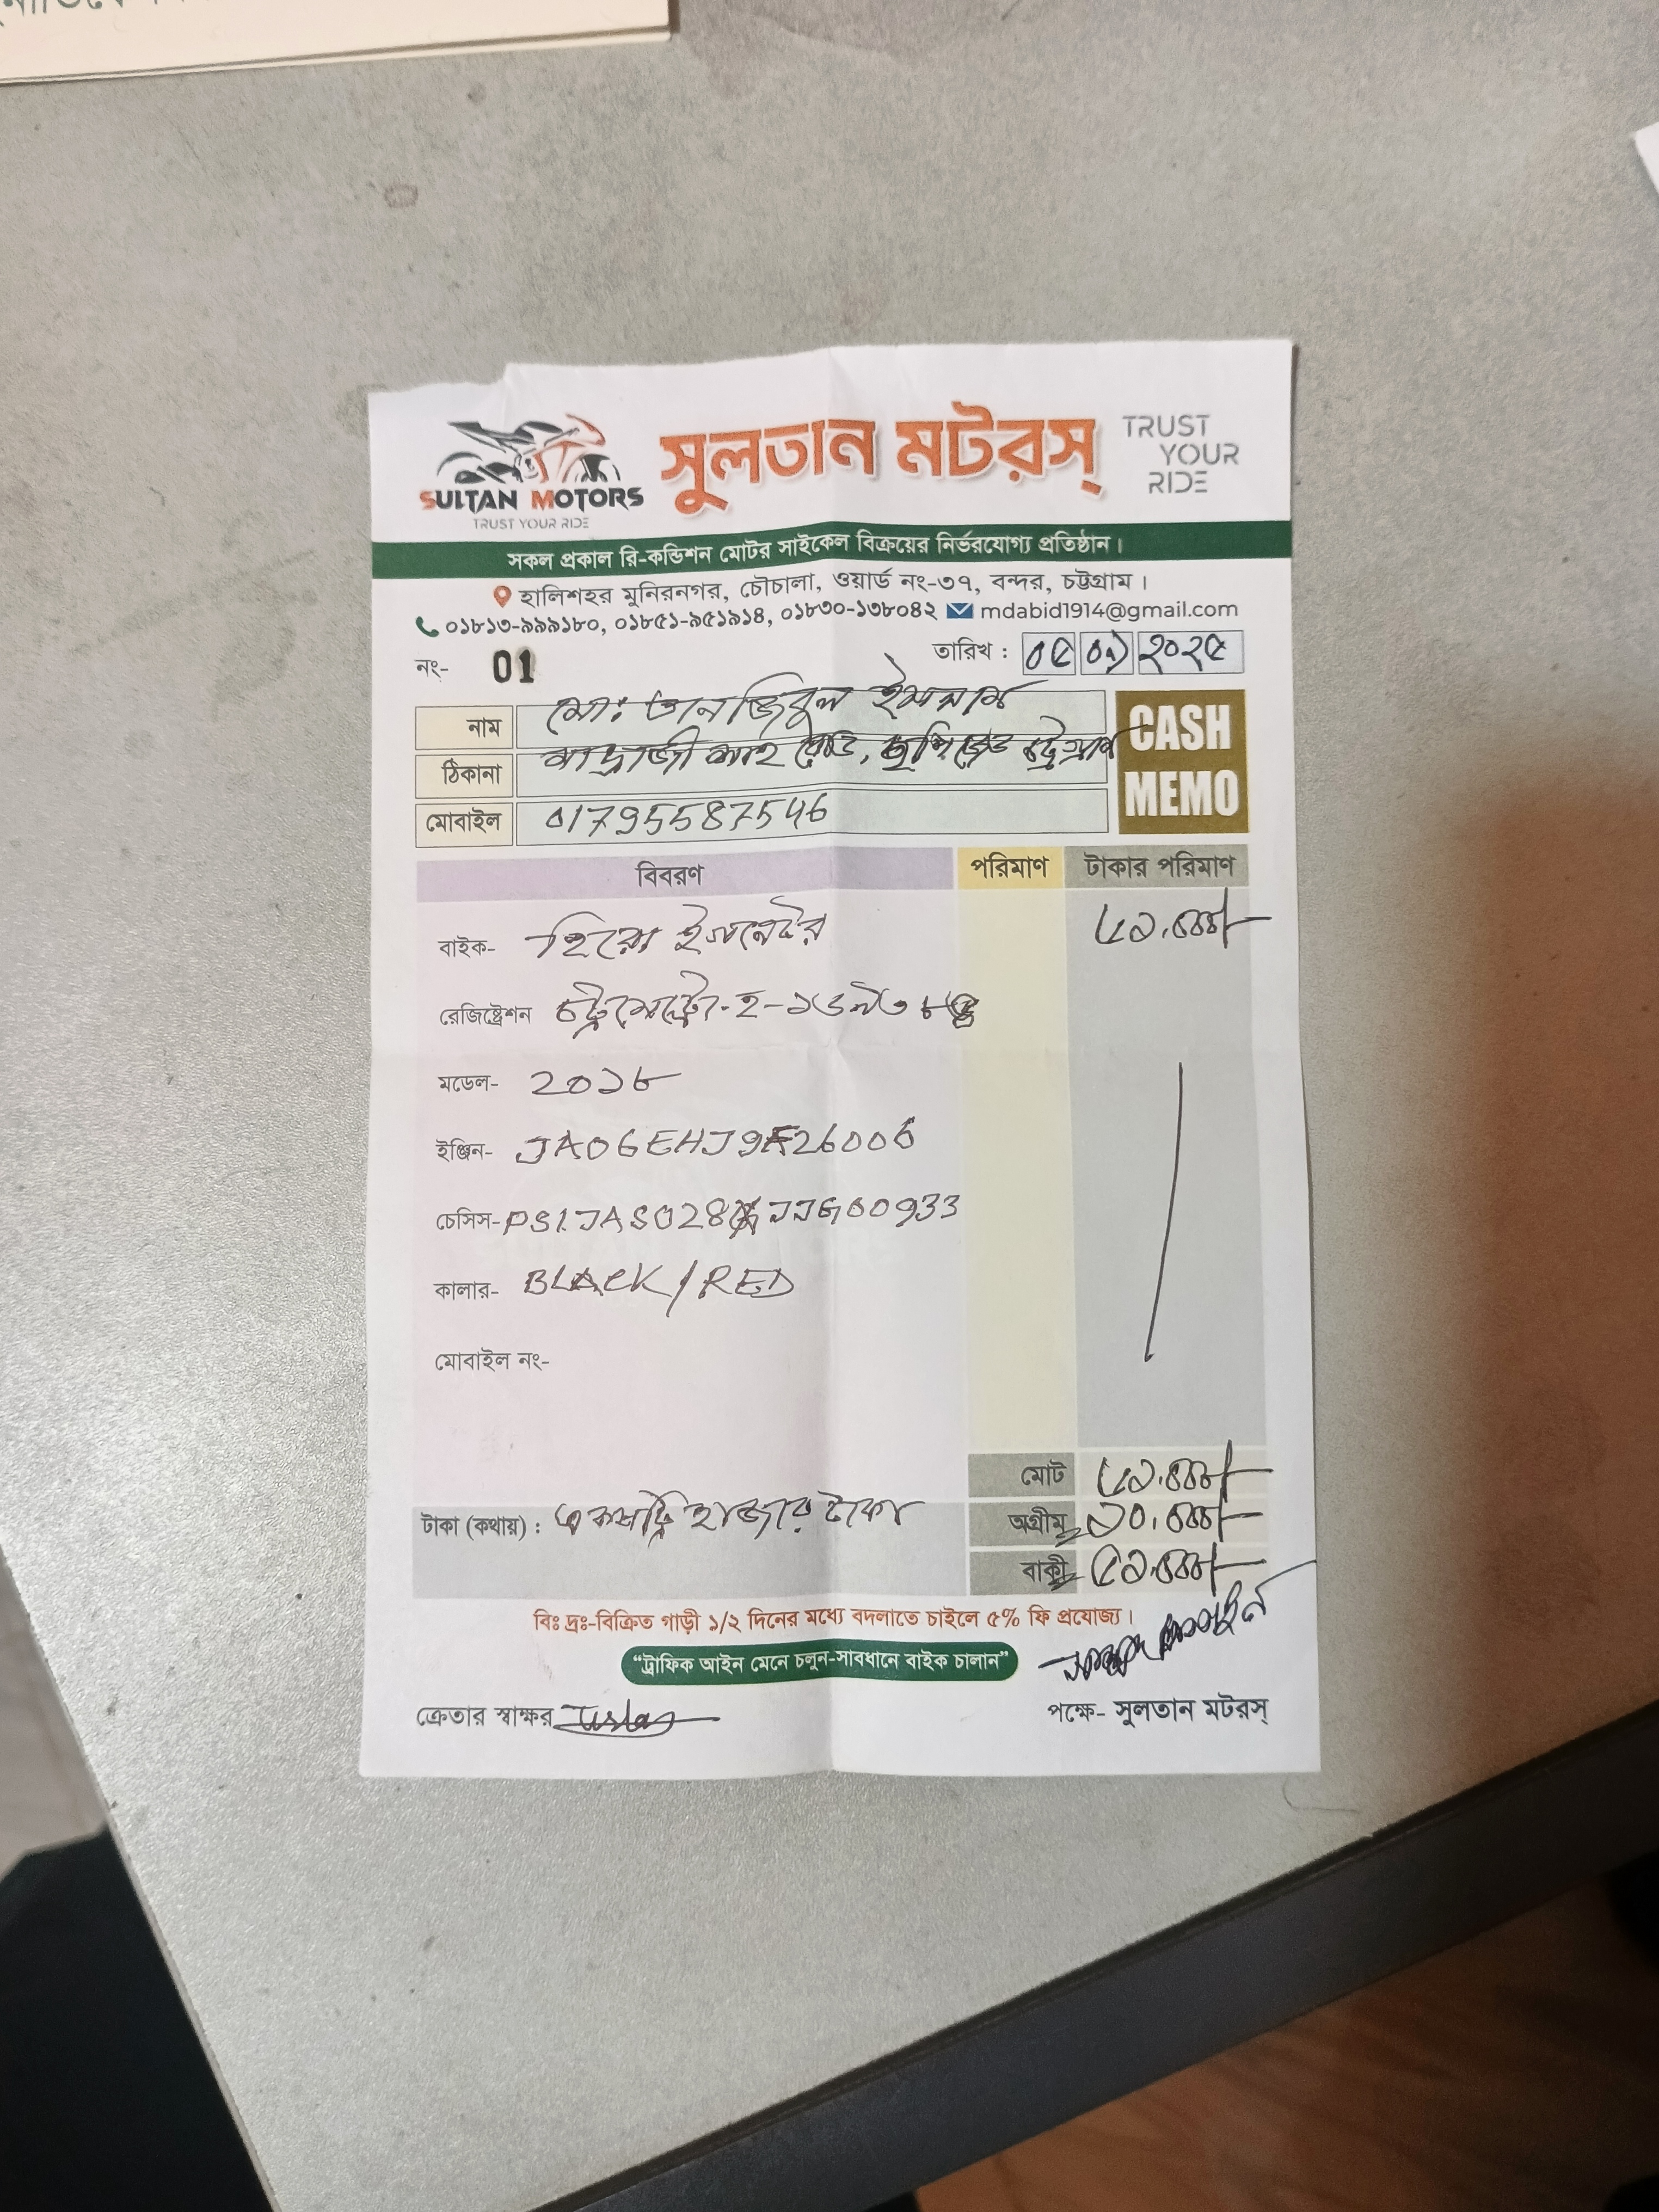 SULTAN MOTORS
TRUST YOUR RIDE
সুলতান মটরস্
TRUST YOUR RIDE
সকল প্রকাল রি-কন্ডিশন মোটর সাইকেল বিক্রয়ের নির্ভরযোগ্য প্রতিষ্ঠান।
হালিশহর মুনিরনগর, চৌচালা, ওয়ার্ড নং-৩৭, বন্দর, চট্টগ্রাম।
০১৮১৩-৯৯৯১৮০, ০১৮৫১-৯৫১৯১৪, ০১৮৩০-১৩৮০৪২ mdabid1914@gmail.com
নং- 01 তারিখ : ০৫ ০৭ ২০২৫
নাম মো: তানজিবুল ইসলাম
ঠিকানা মাদ্রাজী শাহ রোড, চট্টগ্রাম
মোবাইল 01795587546
CASH MEMO
বিবরণ পরিমাণ টাকার পরিমাণ
বাইক- হিরো ইগনেটর ৬১,০০০/-
রেজিষ্ট্রেশন চট্টমেট্রো-হ-
মডেল- 2০১৮
ইঞ্জিন- JA06EHJ9F26006
চেসিস- JJG00933
কালার- BLACK/RED
মোবাইল নং-
মোট ৬১,০০০/-
টাকা (কথায়) : একষট্টি হাজার টাকা
অগ্রীম ১০,০০০/-
বাকী ৫১,০০০/-
বিঃ দ্রঃ-বিক্রিত গাড়ী ১/২ দিনের মধ্যে বদলাতে চাইলে ৫% ফি প্রযোজ্য।
“ট্রাফিক আইন মেনে চলুন-সাবধানে বাইক চালান”
ক্রেতার স্বাক্ষর পক্ষে- সুলতান মটরস্